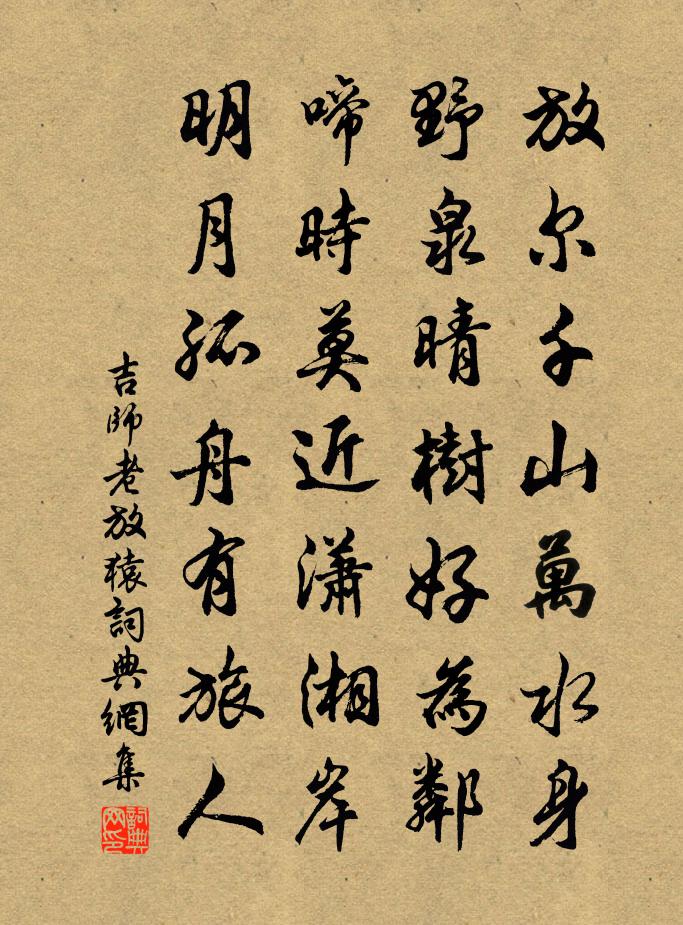 放尔千山萬水身
野泉晴樹好為鄰
啼時莫近瀟湘岸
明月孤舟有旅人
吉師老放猿詞典網集
詞典网印